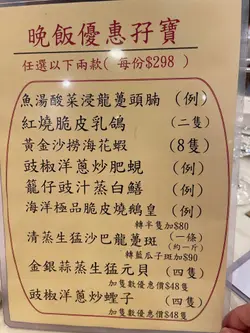 晚飯優惠孖寶
任選以下兩款(每份$298)
魚湯酸菜浸龍躉頭腩(例)
紅燒脆皮乳鴿(二隻)
黃金沙撈海花蝦(8隻)
豉椒洋蔥炒肥蜆(例)
籠仔豉汁蒸白鱔(例)
海洋極品脆皮燒鵝皇(例)
轉半隻加$80
清蒸生猛沙巴龍躉斑(一條)
(約一斤)
轉藍瓜子斑加$90
金銀蒜蒸生猛元貝(四隻)
加隻數優惠價$48隻
豉椒洋蔥炒蟶子(四隻)
加隻數優惠價$48隻